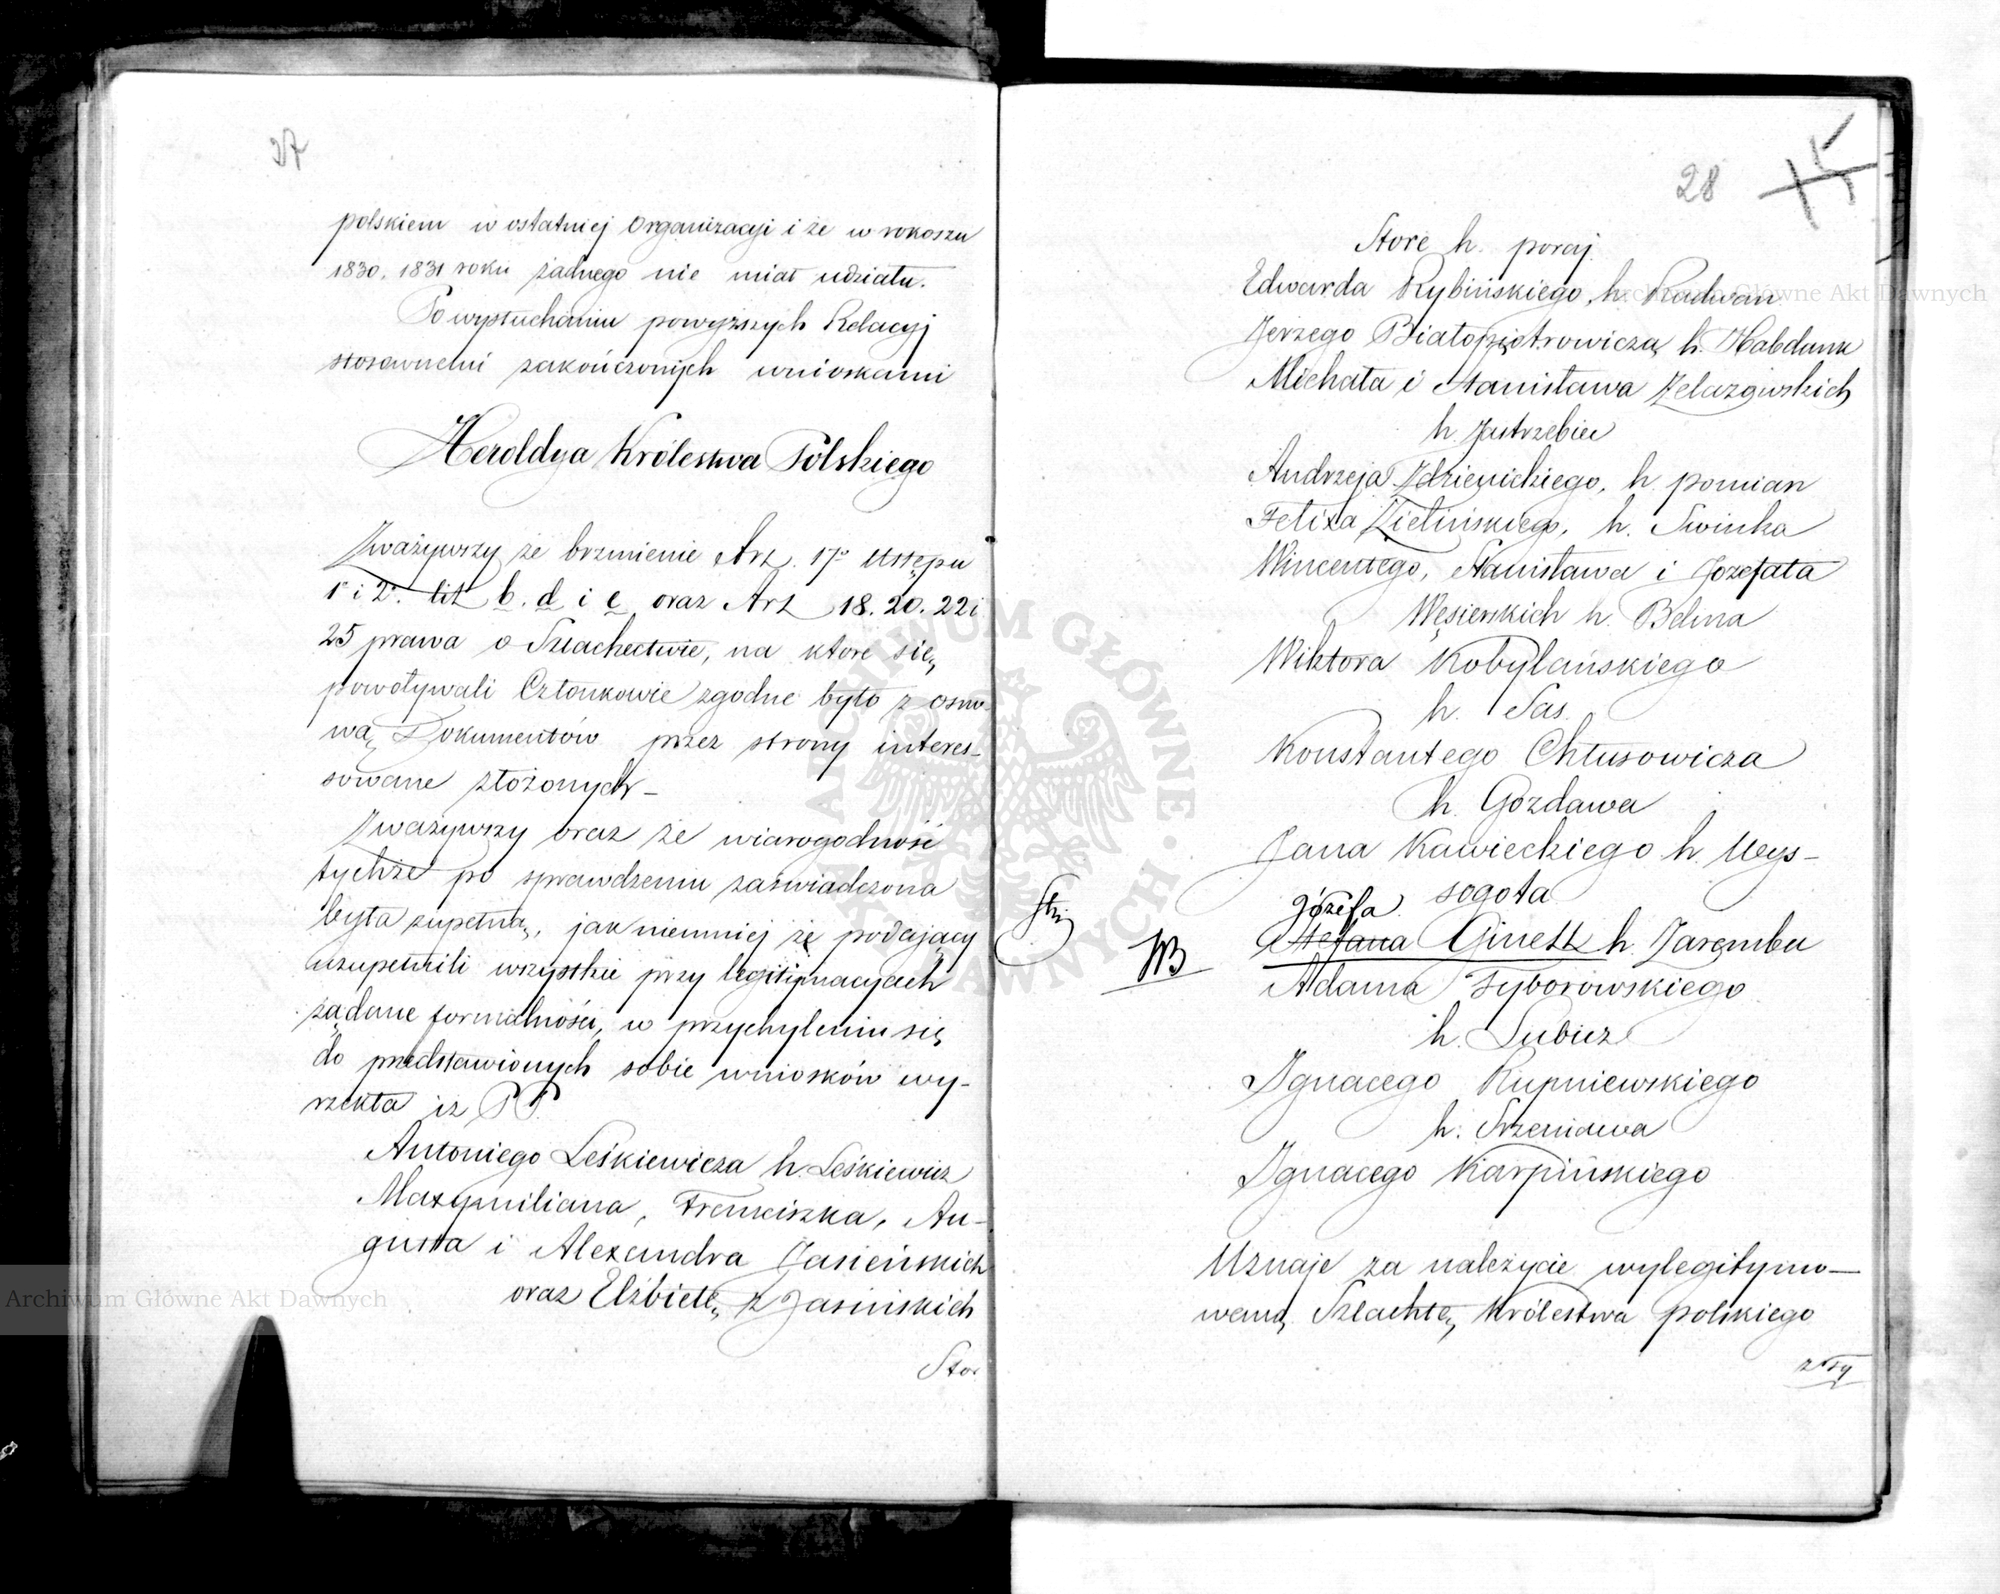 27
polskiem w ostatniej Organizacyi i że w rokoszu
1830. 1831 roku żadnego nie miał udziału.
Po wysłuchaniu powyższych Relacyj
stosownemi zakończonych wnioskami
Heroldya Królestwa Polskiego
Zważywszy że brzmienie Art. 17º Ustępu
1º i 2º. lit b. d i e oraz Art 18. 20. 22 i
25 prawa o Szlachectwie, na które się
powoływali Członkowie zgodne było z osno-
wą Dokumentów przez strony interes-
sowane złożonych-
Zważywszy oraz że wiarogodność
tychże po sprawdzeniu zaświadczona
była zupełną, jak niemniej że podający
uzupełnili wszystkie przy legitymacyach
żądane formalności, w przychyleniu się
do przedstawionych sobie wniosków wy-
rzekła iż PP.
Antoniego Leśkiewicza h. Leśkiewicz
Maxymiliana, Franciszka, Au-
gusta i Alexandra Jasieńskich
oraz Elżbietę z Jasińskich
Stor.
28
Store h. poraj.
Edwarda Rybińskiego, h. Radwan
Jerzego Białopiotrowicza h. Habdank
Michała i Stanisława Żelazowskich
h. Jastrzebiec
Andrzeja Zdzienickiego, h. pomian
Felixa Zielińskiego, h. Swinka
Wincentego, Stanisława i Jozefata
Węsierskich h. Belina
Wiktora Kobylańskiego
h. Sas.
Konstantego Chlusowicza
h. Gozdawa
Jana Kawieckiego h. Wys-
sogota
Józefa
Stefana Ginett h. Jaręmba
NB
Adama Fyborowskiego
h. Lubicz
Ignacego Kupniewskiego
h. Srzeniawa
Ignacego Karpińskiego
Uznaje za należycie wylegitymo-
waną Szlachtę Królestwa polskiego
Archiwum Główne Akt Dawnych
Archiwum Główne Akt Dawnych
ARCHIWUM GŁÓWNE · AKT DAWNYCH ·